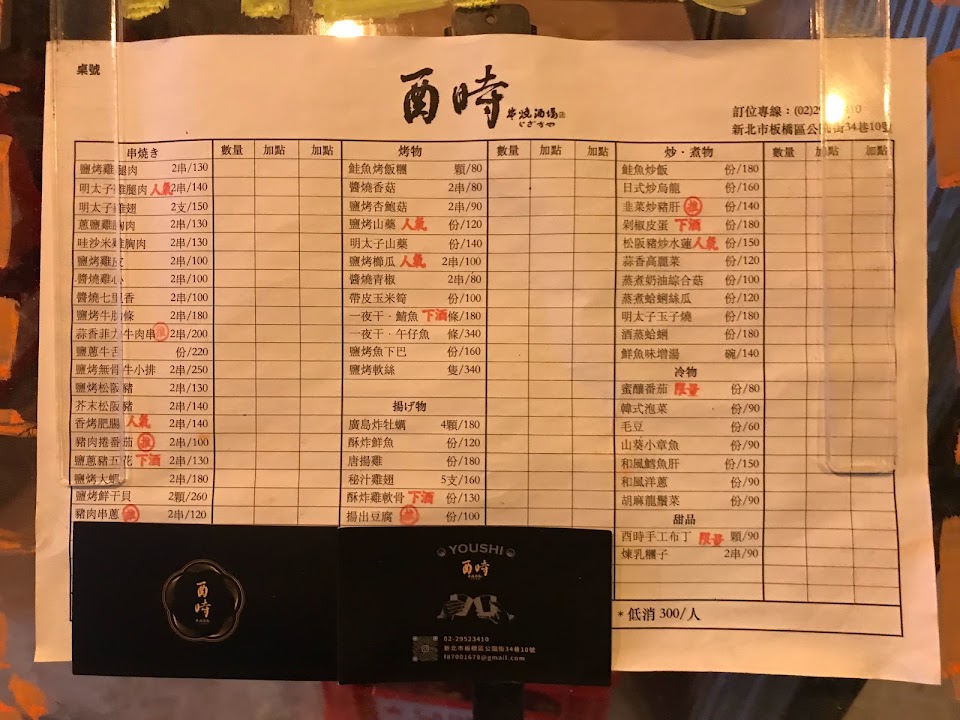 桌號
酉時
串燒酒場
いざかや
訂位專線：(02)29 10
新北市板橋區公園街34巷10號
串燒き 數量 加點 加點
鹽烤雞腿肉 2串/130
明太子雞腿肉 人氣 2串/140
明太子雞翅 2支/150
蔥鹽雞胸肉 2串/130
哇沙米雞胸肉 2串/130
鹽烤雞皮 2串/100
醬燒雞心 2串/100
醬燒七里香 2串/100
鹽烤牛肋條 2串/180
蒜香菲力牛肉串 推 2串/200
鹽蔥牛舌 份/220
鹽烤無骨牛小排 2串/250
鹽烤松阪豬 2串/130
芥末松阪豬 2串/140
香烤肥腸 人氣 2串/140
豬肉捲番茄 推 2串/100
鹽蔥豬五花 下酒 2串/130
鹽烤大蝦 2串/180
鹽烤鮮干貝 2顆/260
豬肉串蔥 推 2串/120
烤物 數量 加點 加點
鮭魚烤飯糰 顆/80
醬燒香菇 2串/80
鹽烤杏鮑菇 2串/90
鹽烤山藥 人氣 份/120
明太子山藥 份/140
鹽烤櫛瓜 人氣 2串/100
醬燒青椒 2串/80
帶皮玉米筍 份/100
一夜干·鯖魚 下酒 條/180
一夜干·午仔魚 條/340
鹽烤魚下巴 份/160
鹽烤軟絲 隻/340
揚げ物
廣島炸牡蠣 4顆/180
酥炸鮮魚 份/120
唐揚雞 份/180
秘汁雞翅 5支/160
酥炸雞軟骨 下酒 份/130
揚出豆腐 推 份/100
炒·煮物 數量 加點 加點
鮭魚炒飯 份/180
日式炒烏龍 份/160
韭菜炒豬肝 推 份/140
剁椒皮蛋 下酒 份/100
松阪豬炒水蓮 人氣 份/150
蒜香高麗菜 份/120
蒸煮奶油綜合菇 份/100
蒸煮蛤蜊絲瓜 份/120
明太子玉子燒 份/180
酒蒸蛤蜊 份/180
鮮魚味增湯 碗/140
冷物
蜜釀番茄 限量 份/80
韓式泡菜 份/90
毛豆 份/60
山葵小章魚 份/90
和風鱈魚肝 份/150
和風洋蔥 份/90
胡麻龍鬚菜 份/90
甜品
酉時手工布丁 限量 顆/90
煉乳糰子 2串/90
*低消 300/人
酉時
YOUSHI
酉時
02-29523410
新北市板橋區公園街34巷10號
f87001678@gmail.com